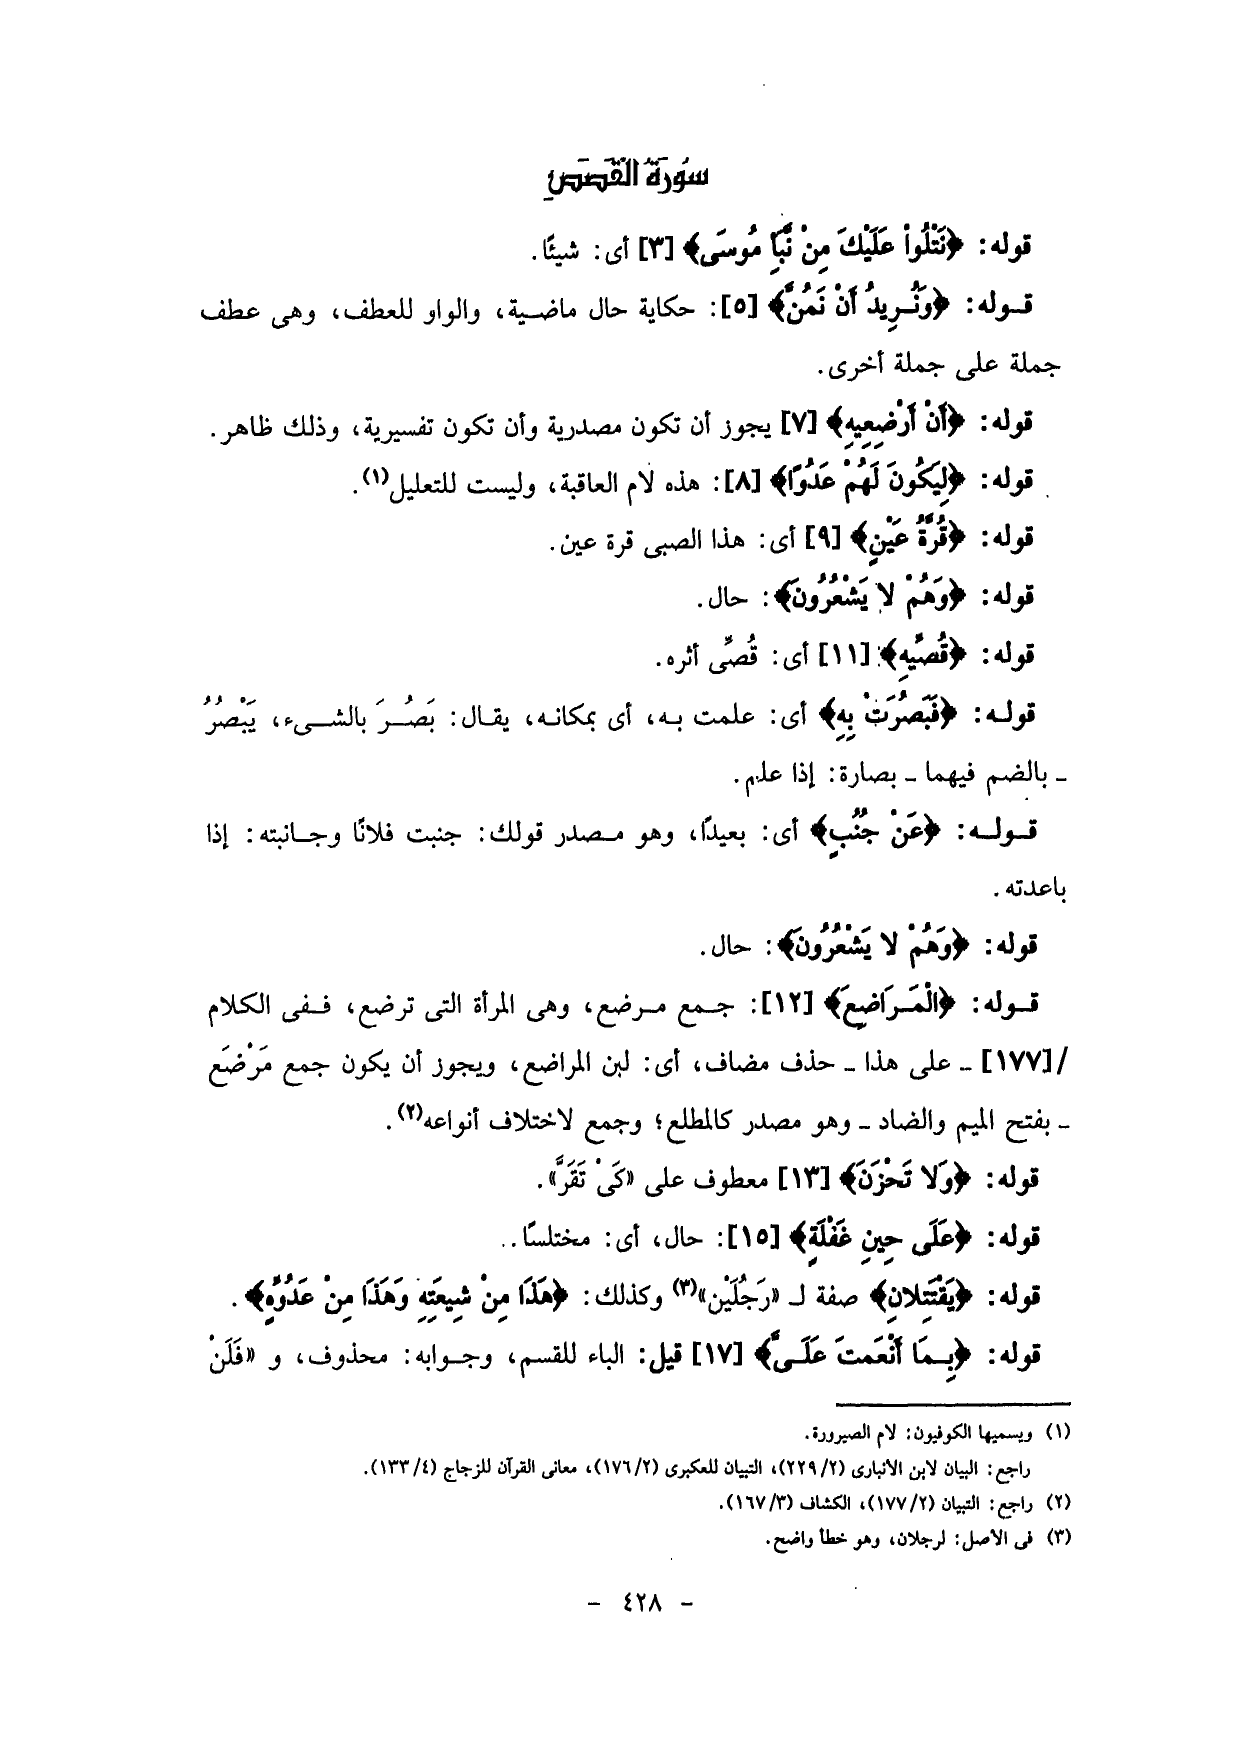 سُورَةُ الْقَصَصِ
قوله: ﴿نَتْلُواْ عَلَيْكَ مِنْ نَّبَأِ مُوسَى﴾ [٣] أى: شيئًا.
قـوله: ﴿وَنُـرِيدُ أَنْ نَمُنَّ﴾ [٥]: حكاية حال ماضـية، والواو للعطف، وهى عطف
جملة على جملة أخرى.
قوله: ﴿أَنْ أَرْضِعِيهِ﴾ [٧] يجوز أن تكون مصدرية وأن تكون تفسيرية، وذلك ظاهر.
قوله: ﴿لِيَكُونَ لَهُمْ عَدُوًّا﴾ [٨]: هذه لام العاقبة، وليست للتعليل(١).
قوله: ﴿قُرَّةُ عَيْنٍ﴾ [٩] أى: هذا الصبى قرة عين.
قوله: ﴿وَهُمْ لا يَشْعُرُونَ﴾: حال.
قوله: ﴿قُصِّيهِ﴾ [١١] أى: قُصِّى أثره.
قولـه: ﴿فَبَصُرَتْ بِهِ﴾ أى: علمت بـه، أى بمكانـه، يقـال: بَصُـرَ بالشـىء، يَبْصُرُ
ـ بالضم فيهما ـ بصارة: إذا علم.
قـولـه: ﴿عَنْ جُنُبٍ﴾ أى: بعيدًا، وهو مـصدر قولك: جنبت فلانًا وجـانبته: إذا
باعدته.
قوله: ﴿وَهُمْ لا يَشْعُرُونَ﴾: حال.
قـوله: ﴿الْمَـرَاضِعَ﴾ [١٢]: جـمع مـرضع، وهى المرأة التى ترضع، فـفى الكلام
/[١٧٧] ـ على هذا ـ حذف مضاف، أى: لبن المراضع، ويجوز أن يكون جمع مَرْضَع
ـ بفتح الميم والضاد ـ وهو مصدر كالمطلع؛ وجمع لاختلاف أنواعه(٢).
قوله: ﴿وَلا تَحْزَنَ﴾ [١٣] معطوف على «كَىْ تَقَرَّ».
قوله: ﴿عَلَى حِينِ غَفْلَةٍ﴾ [١٥]: حال، أى: مختلسًا..
قوله: ﴿يَقْتَتِلانِ﴾ صفة لـ «رَجُلَيْن»(٣) وكذلك: ﴿هَذَا مِنْ شِيعَتِهِ وَهَذَا مِنْ عَدُوِّهِ﴾.
قوله: ﴿بِـمَا أَنْعَمتَ عَلَـىَّ﴾ [١٧] قيل: الباء للقسم، وجـوابه: محذوف، و «فَلَنْ
(١) ويسميها الكوفيون: لام الصيرورة.
راجع: البيان لابن الأنبارى (٢/٢٢٩)، التبيان للعكبرى (٢/١٧٦)، معانى القرآن للزجاج (٤/١٣٣).
(٢) راجع: التبيان (٢/١٧٧)، الكشاف (٣/١٦٧).
(٣) فى الأصل: لرجلان، وهو خطأ واضح.
- ٤٢٨ -